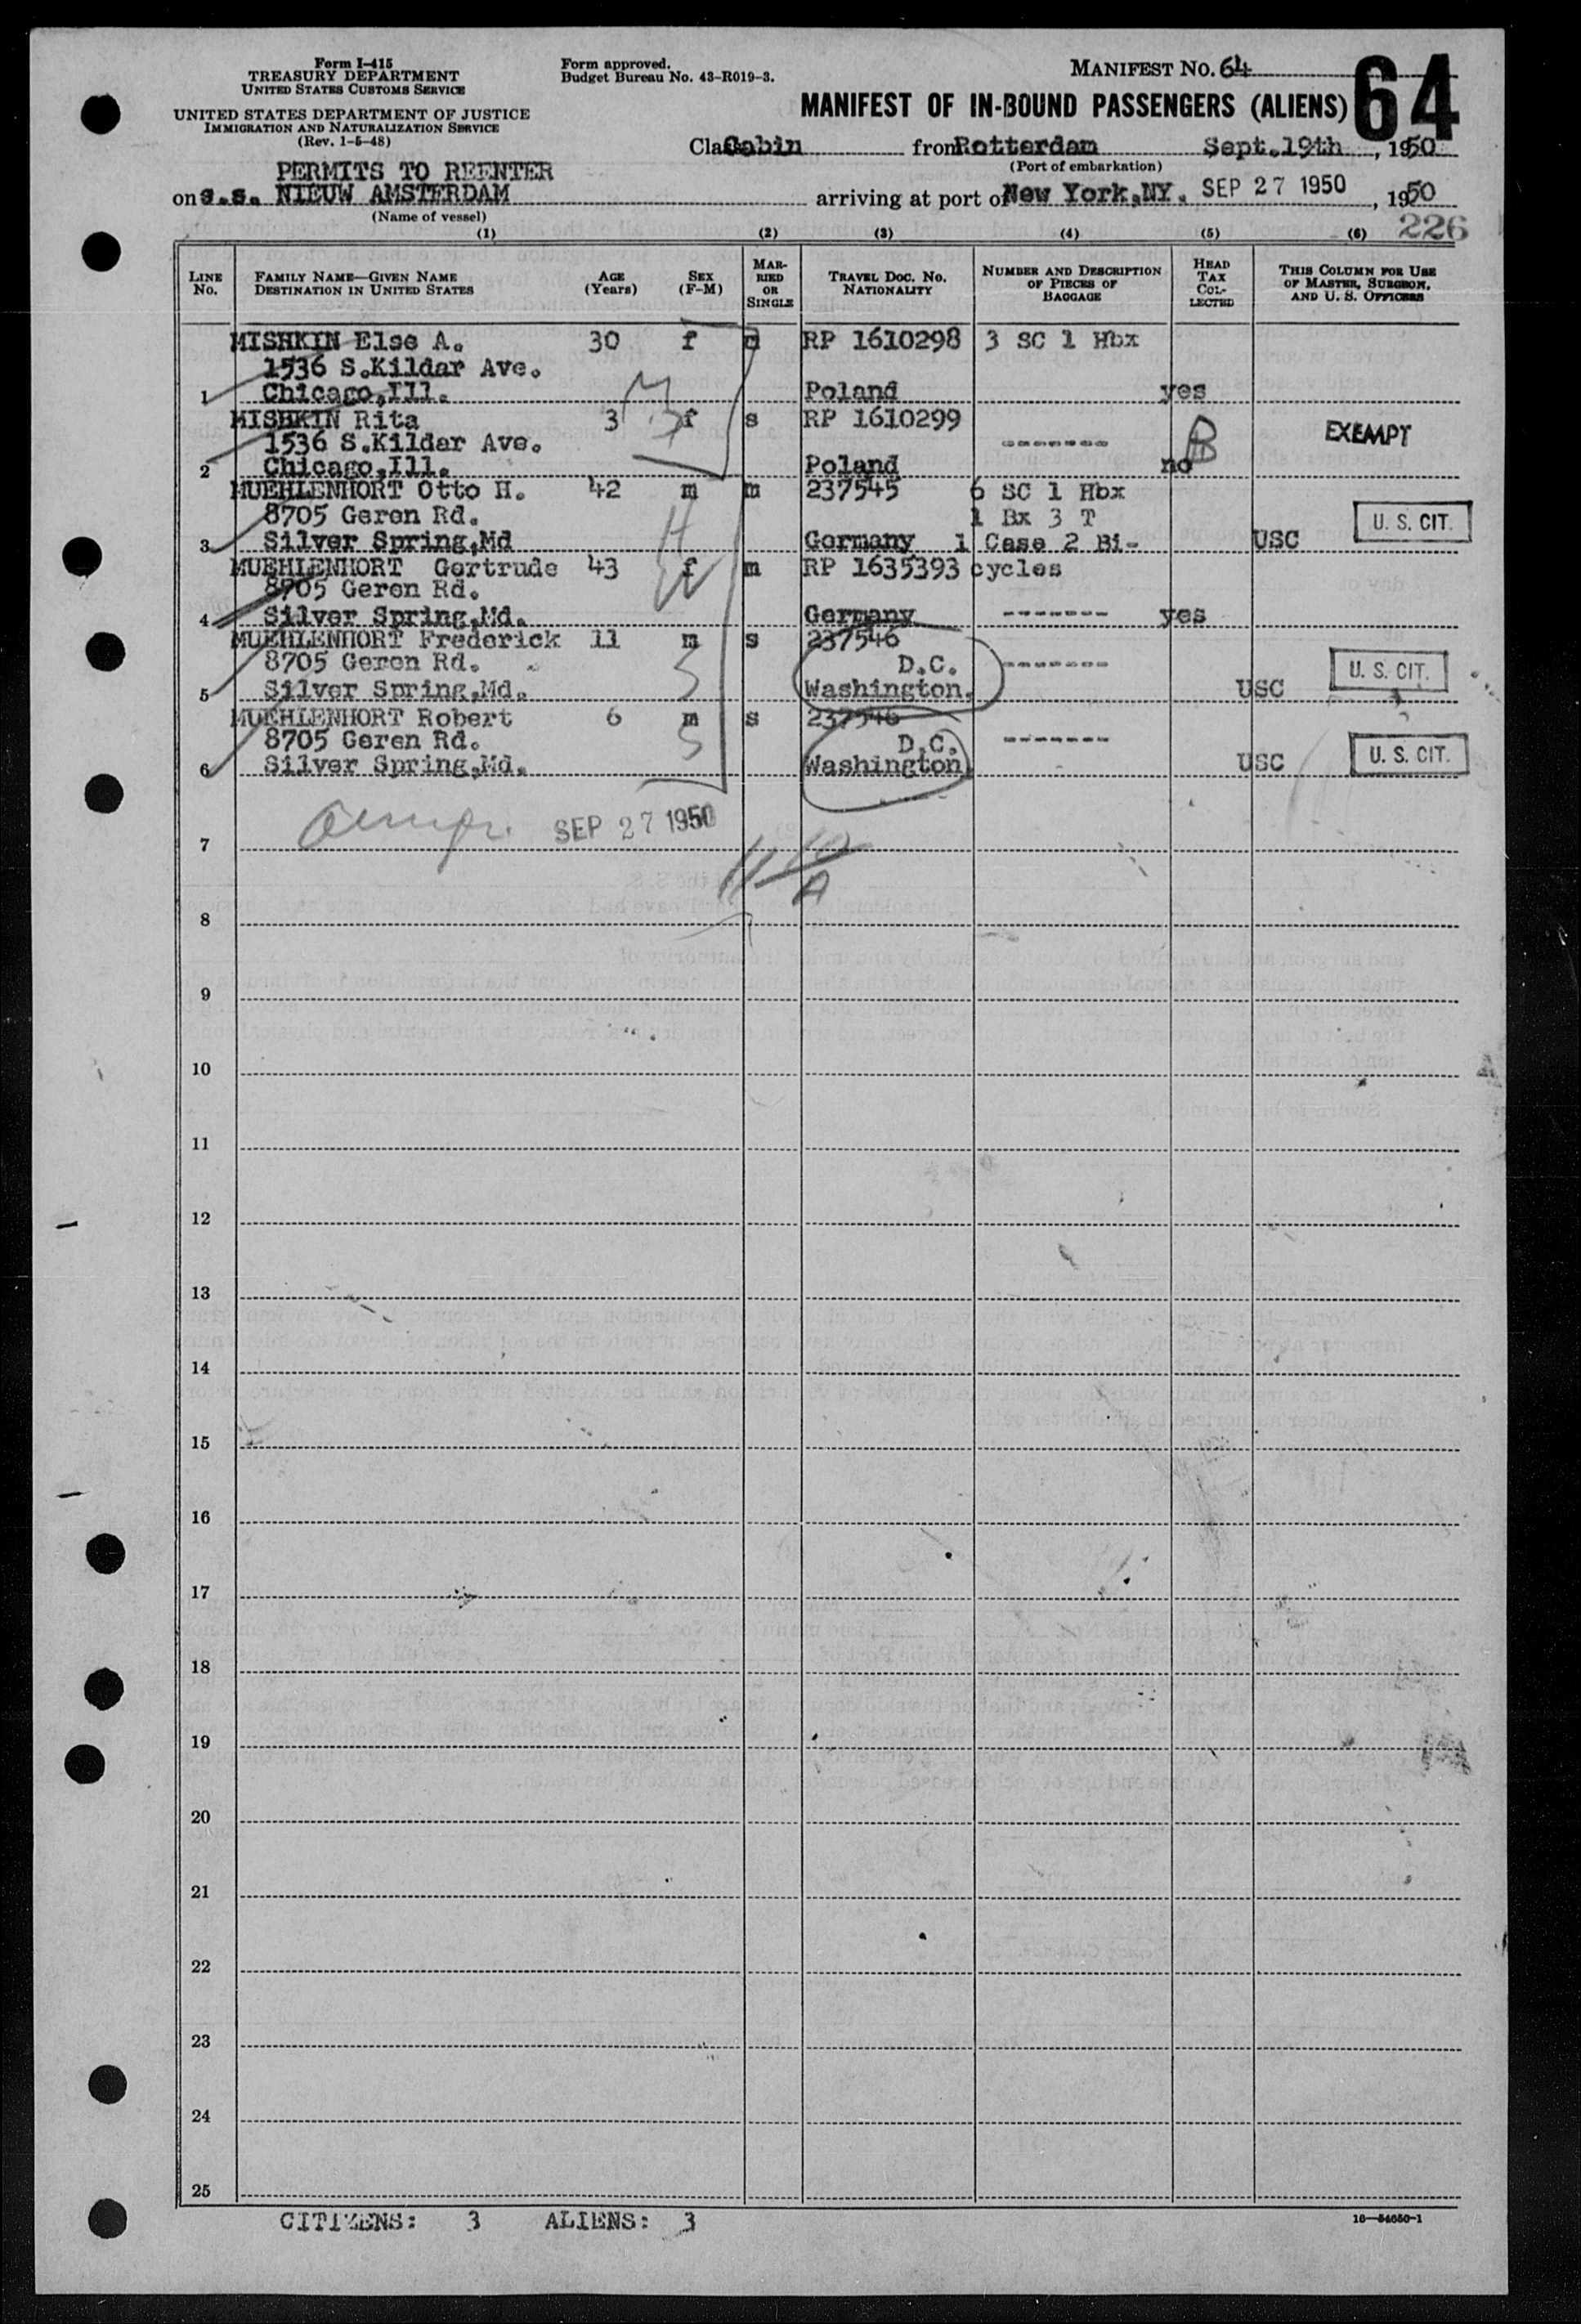 Form I-415
TREASURY DEPARTMENT
UNITED STATES CUSTOMS SERVICE
UNITED STATES DEPARTMENT OF JUSTICE
IMMIGRATION AND NATURALIZATION SERVICE
(Rev. 1-5-48)
Form approved.
Budget Bureau No. 43-R019-3.
MANIFEST No. 64
64
MANIFEST OF IN-BOUND PASSENGERS (ALIENS)
Cla Cabin from Rotterdam Sept.19th, 1950
(Port of embarkation)
PERMITS TO REENTER
on s.s. NIEUW AMSTERDAM arriving at port of New York,NY. SEP 27 1950, 1950
(Name of vessel)
226
(1) (2) (3) (4) (5) (6)
LINE No. FAMILY NAME—GIVEN NAME DESTINATION IN UNITED STATES AGE (Years) SEX (F-M) MARRIED OR SINGLE TRAVEL DOC. NO. NATIONALITY NUMBER AND DESCRIPTION OF PIECES OF BAGGAGE HEAD TAX COLLECTED THIS COLUMN FOR USE OF MASTER, SURGEON, AND U. S. OFFICERS
MISHKIN Else A. 30 f d RP 1610298 3 SC 1 Hbx
1536 S.Kildar Ave.
1 Chicago,Ill. Poland yes
MISHKIN Rita 3 f s RP 1610299
1536 S.Kildar Ave. ------- EXEMPT
2 Chicago,Ill. Poland no
MUEHLENHORT Otto H. 42 m m 237545 6 SC 1 Hbx
8705 Geren Rd. 1 Bx 3 T U. S. CIT.
3 Silver Spring,Md Germany 1 Case 2 Bi- USC
MUEHLENHORT Gertrude 43 f m RP 1635393 cycles
8705 Geren Rd.
4 Silver Spring,Md. Germany ------- yes
MUEHLENHORT Frederick 11 m s 237546
8705 Geren Rd. D.C. ------- U. S. CIT.
5 Silver Spring,Md. Washington, USC
MUEHLENHORT Robert 6 m s 237546
8705 Geren Rd. D.C. -------
6 Silver Spring,Md. Washington USC U. S. CIT.
SEP 27 1950
7
8
9
10
11
12
13
14
15
16
17
18
19
20
21
22
23
24
25
CITIZENS: 3 ALIENS: 3
16—54650-1